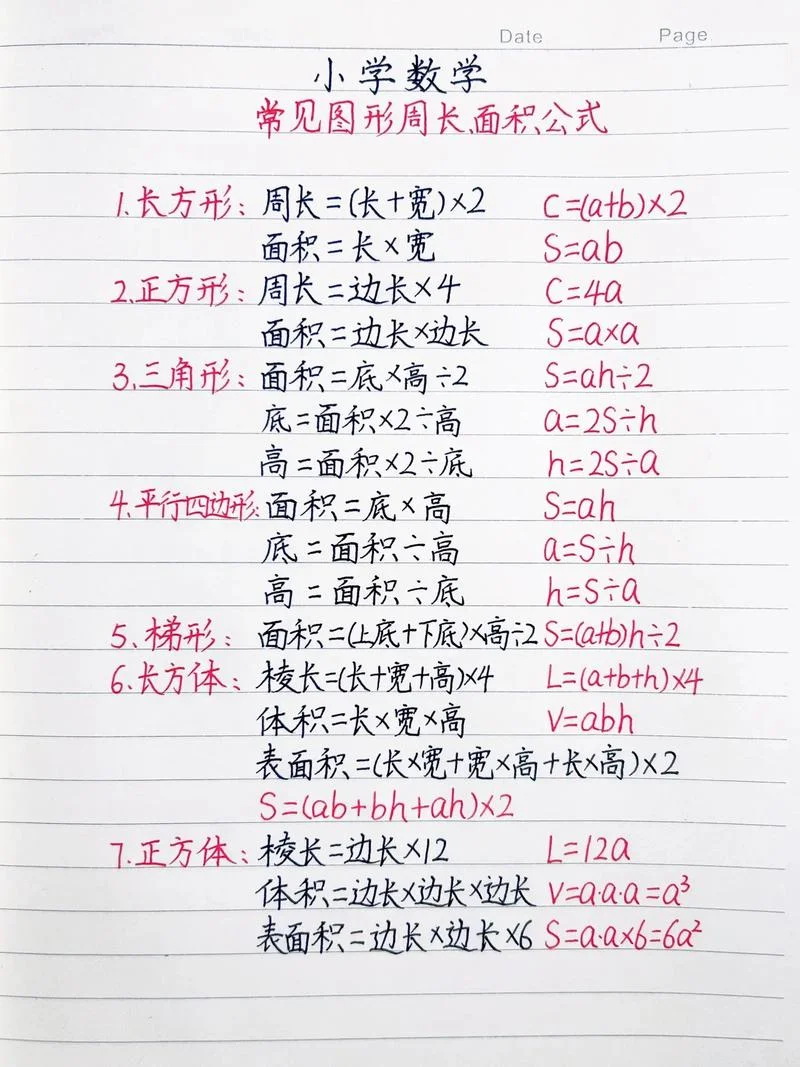 Date Page
小学数学
常见图形周长、面积公式
1.长方形：周长=(长+宽)×2 C=(a+b)×2
面积=长×宽 S=ab
2.正方形：周长=边长×4 C=4a
面积=边长×边长 S=a×a
3.三角形：面积=底×高÷2 S=ah÷2
底=面积×2÷高 a=2S÷h
高=面积×2÷底 h=2S÷a
4.平行四边形：面积=底×高 S=ah
底=面积÷高 a=S÷h
高=面积÷底 h=S÷a
5.梯形：面积=(上底+下底)×高÷2 S=(a+b)h÷2
6.长方体：棱长=(长+宽+高)×4 L=(a+b+h)×4
体积=长×宽×高 V=abh
表面积=(长×宽+宽×高+长×高)×2
S=(ab+bh+ah)×2
7.正方体：棱长=边长×12 L=12a
体积=边长×边长×边长 V=a·a·a=a³
表面积=边长×边长×6 S=a·a×6=6a²